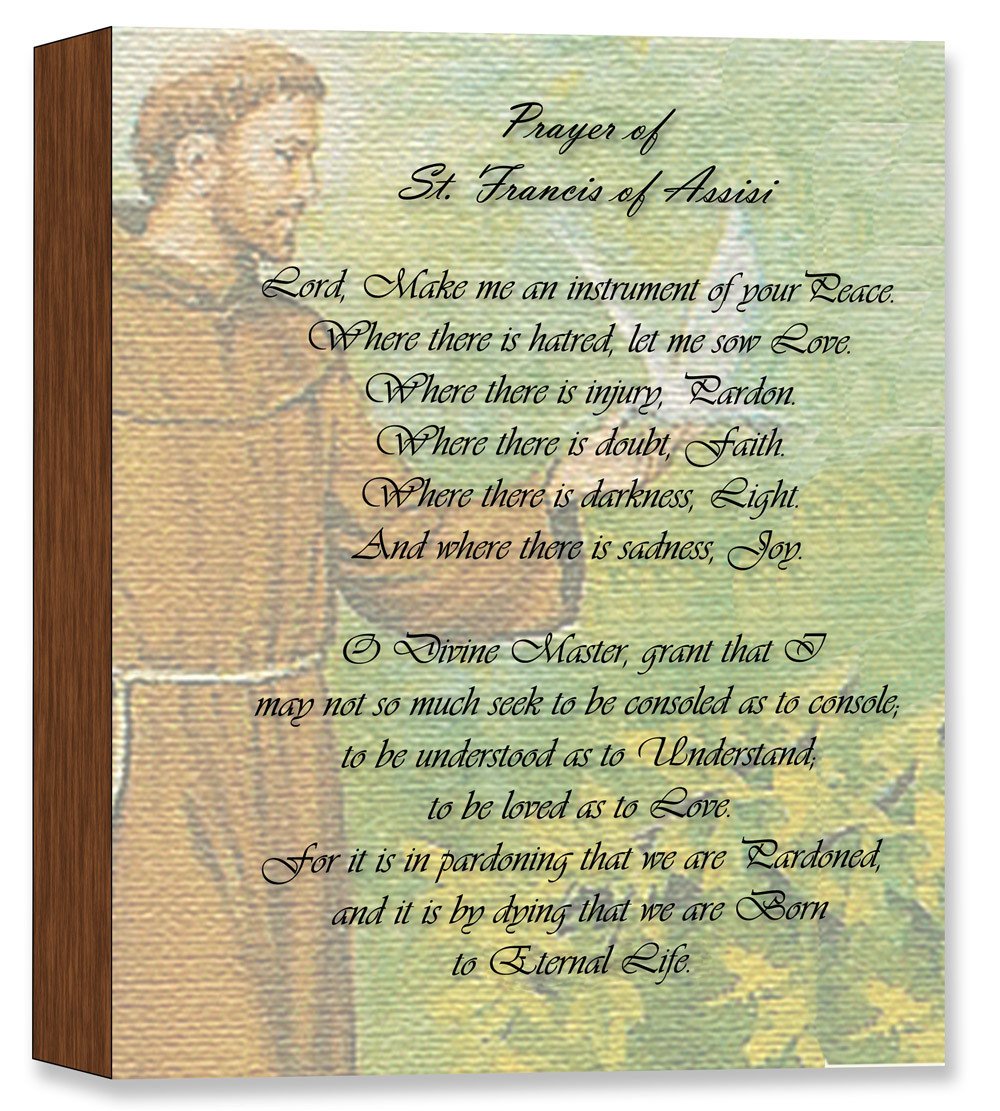 Prayer of
St. Francis of Assisi
Lord, Make me an instrument of your Peace.
Where there is hatred, let me sow Love.
Where there is injury, Pardon.
Where there is doubt, Faith.
Where there is darkness, Light.
And where there is sadness, Joy.
O Divine Master, grant that I
may not so much seek to be consoled as to console;
to be understood as to Understand;
to be loved as to Love.
For it is in pardoning that we are Pardoned,
and it is by dying that we are Born
to Eternal Life.